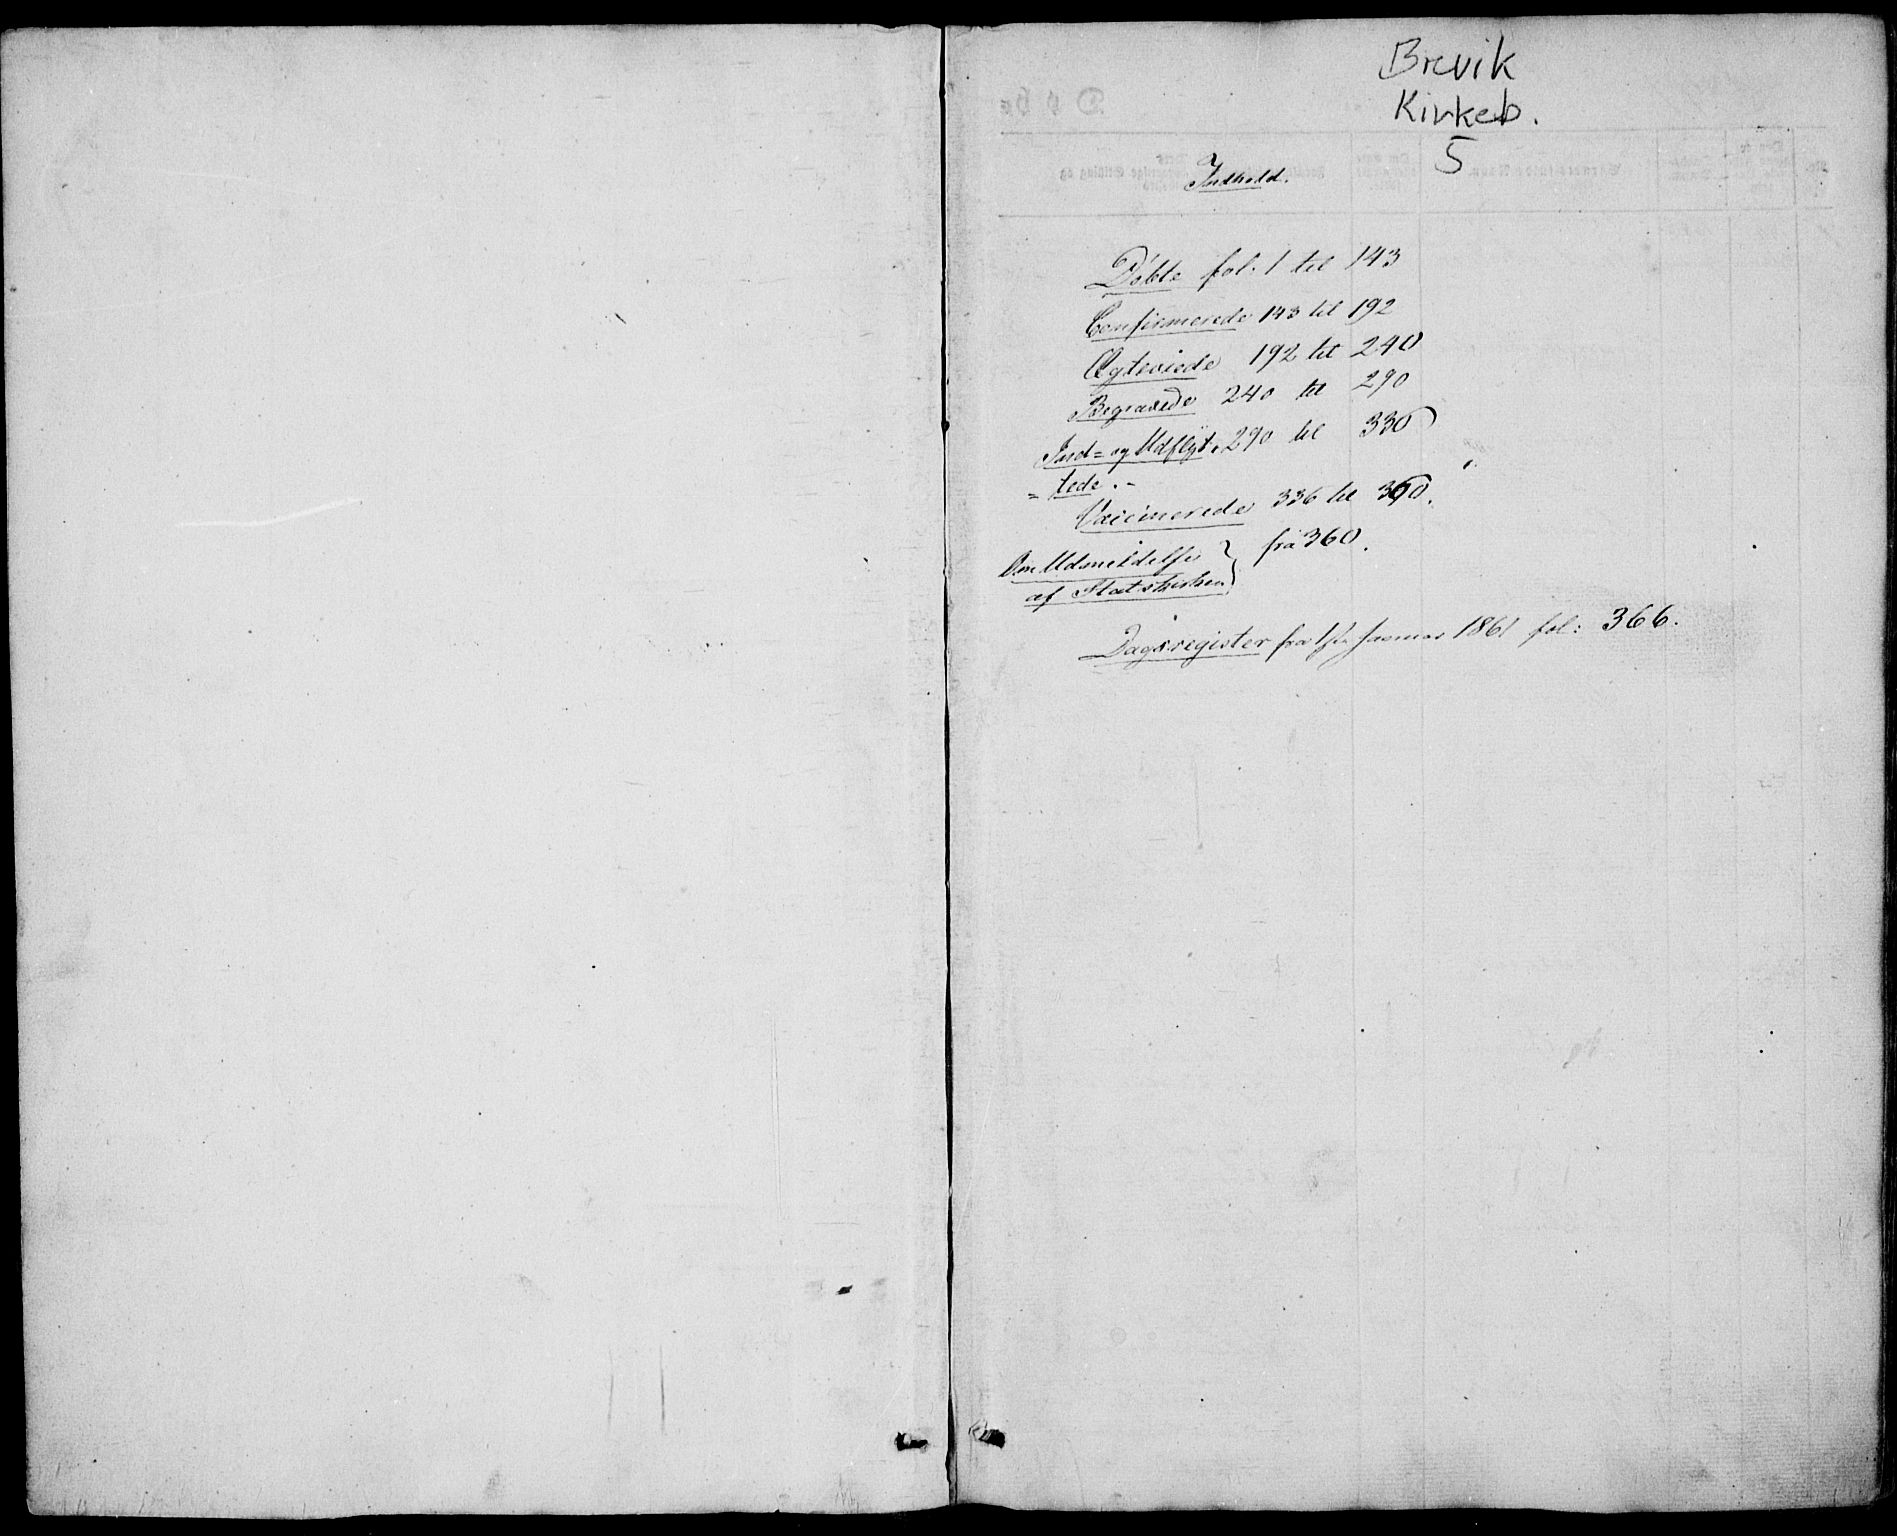 Brevik
Kirkeb.
5
Indhold.
Döbte fol: 1 til 143
Confirmerede 143 til 192
Ægteviede 192 til 240
Begravede 240 til 290
Ind= og Udflyt. 290 til 336
= tede. -
Vaccinerede 336 til 360.
Om Udmeldelse } fra 360.
af Statskirken
Dagsregister fra Januar 1861 fol: 366.